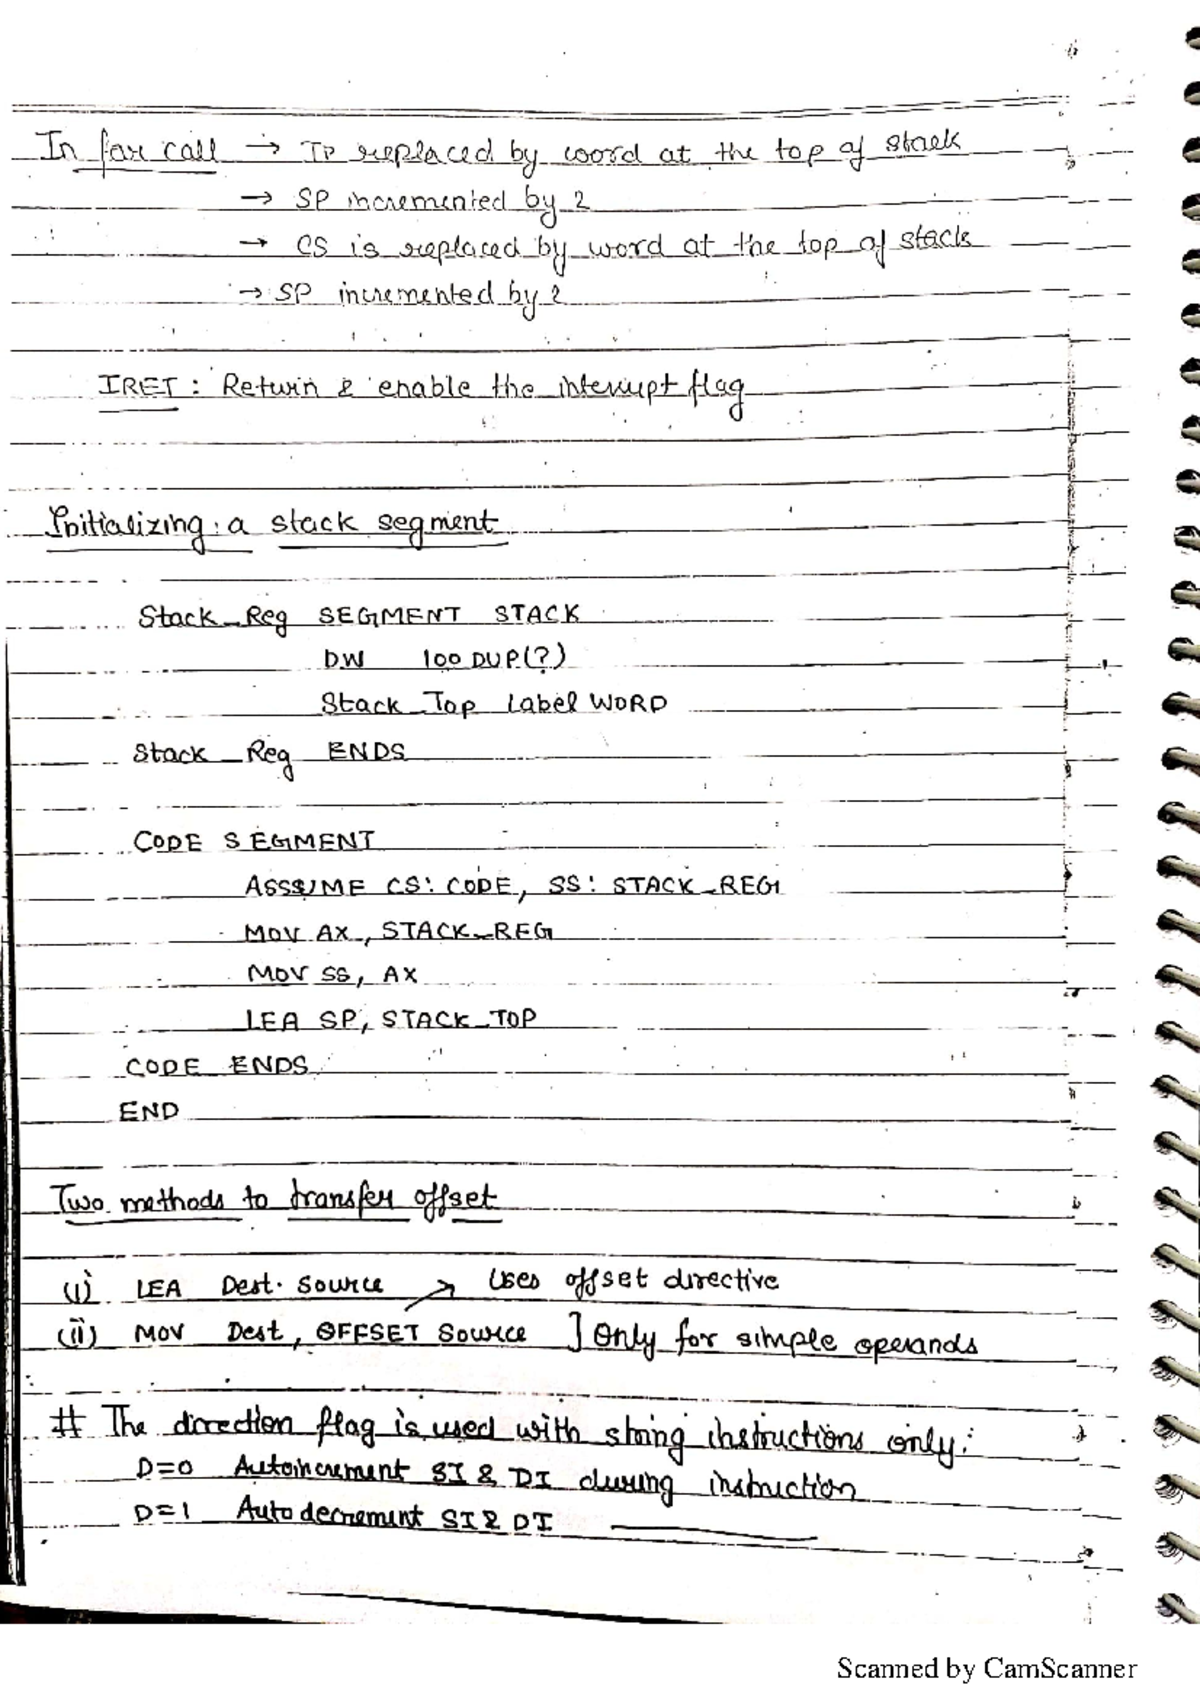 In far call → IP replaced by word at the top of stack
→ SP incremented by 2
→ CS is replaced by word at the top of stack
→ SP incremented by 2
IRET : Return & enable the interrupt flag
Initializing a stack segment
Stack_Reg SEGMENT STACK
DW 100 DUP(?)
Stack_Top Label WORD
Stack_Reg ENDS
CODE SEGMENT
ASSSUME CS: CODE, SS: STACK_REG
MOV AX, STACK_REG
MOV SS, AX
LEA SP, STACK_TOP
CODE ENDS
END
Two methods to transfer offset
(i) LEA Dest. Source → Uses offset directive
(ii) MOV Dest, OFFSET Source ] Only for simple operands
# The direction flag is used with string instructions only:
D=0 Autoincrement SI & DI during instruction
D=1 Autodecrement SI & DI ————
Scanned by CamScanner